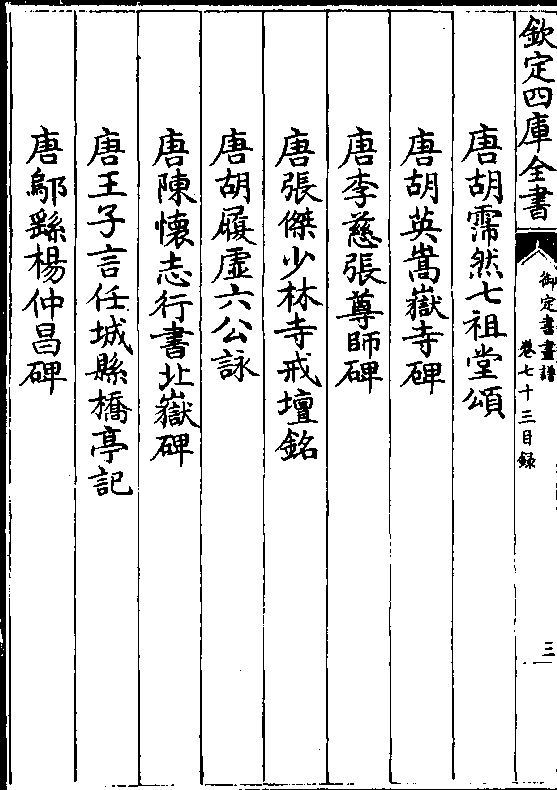 欽定四庫全書
御定書畫譜
卷七十三目録
三
唐胡霈然七祖堂頌
唐胡英嵩嶽寺碑
唐李慈張尊師碑
唐張傑少林寺戒壇銘
唐胡履虛六公詠
唐陳懷志行書北嶽碑
唐王子言任城縣橋亭記
唐鄔繇楊仲昌碑